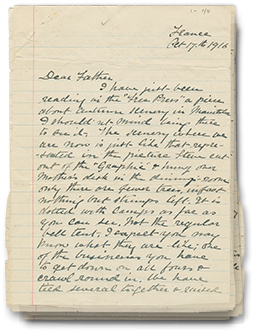 France
Oct 17th 1916
Dear Father
I have just been
reading in the "Free Press" a piece
about autumn scenery in Manitoba
I should not mind being there
to see it. The scenery where we
are now is just like that repre-
sented in the picture Steve cut
out of the "Graphic" & hung over
Mother's desk in the dining-room
only there are fewer trees, in fact
nothing but stumps left. It is
dotted with camps as far as
you can see, not the regular
bell tent, I expect you may
know what they are like; one
of the businesses you have
to get down on all fours &
crawl round in. We have
tied several together & raised